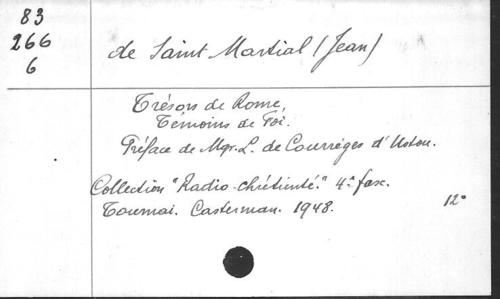 83
266
6
de Saint Martial (Jean)
Trésors de Rome,
Témoins de Foi.
Préface de Mgr. L. de Courrèges d'Uston.
Collection "Radio-chrétienté." 4e fasc.
Tournai. Casterman. 1948. 12°